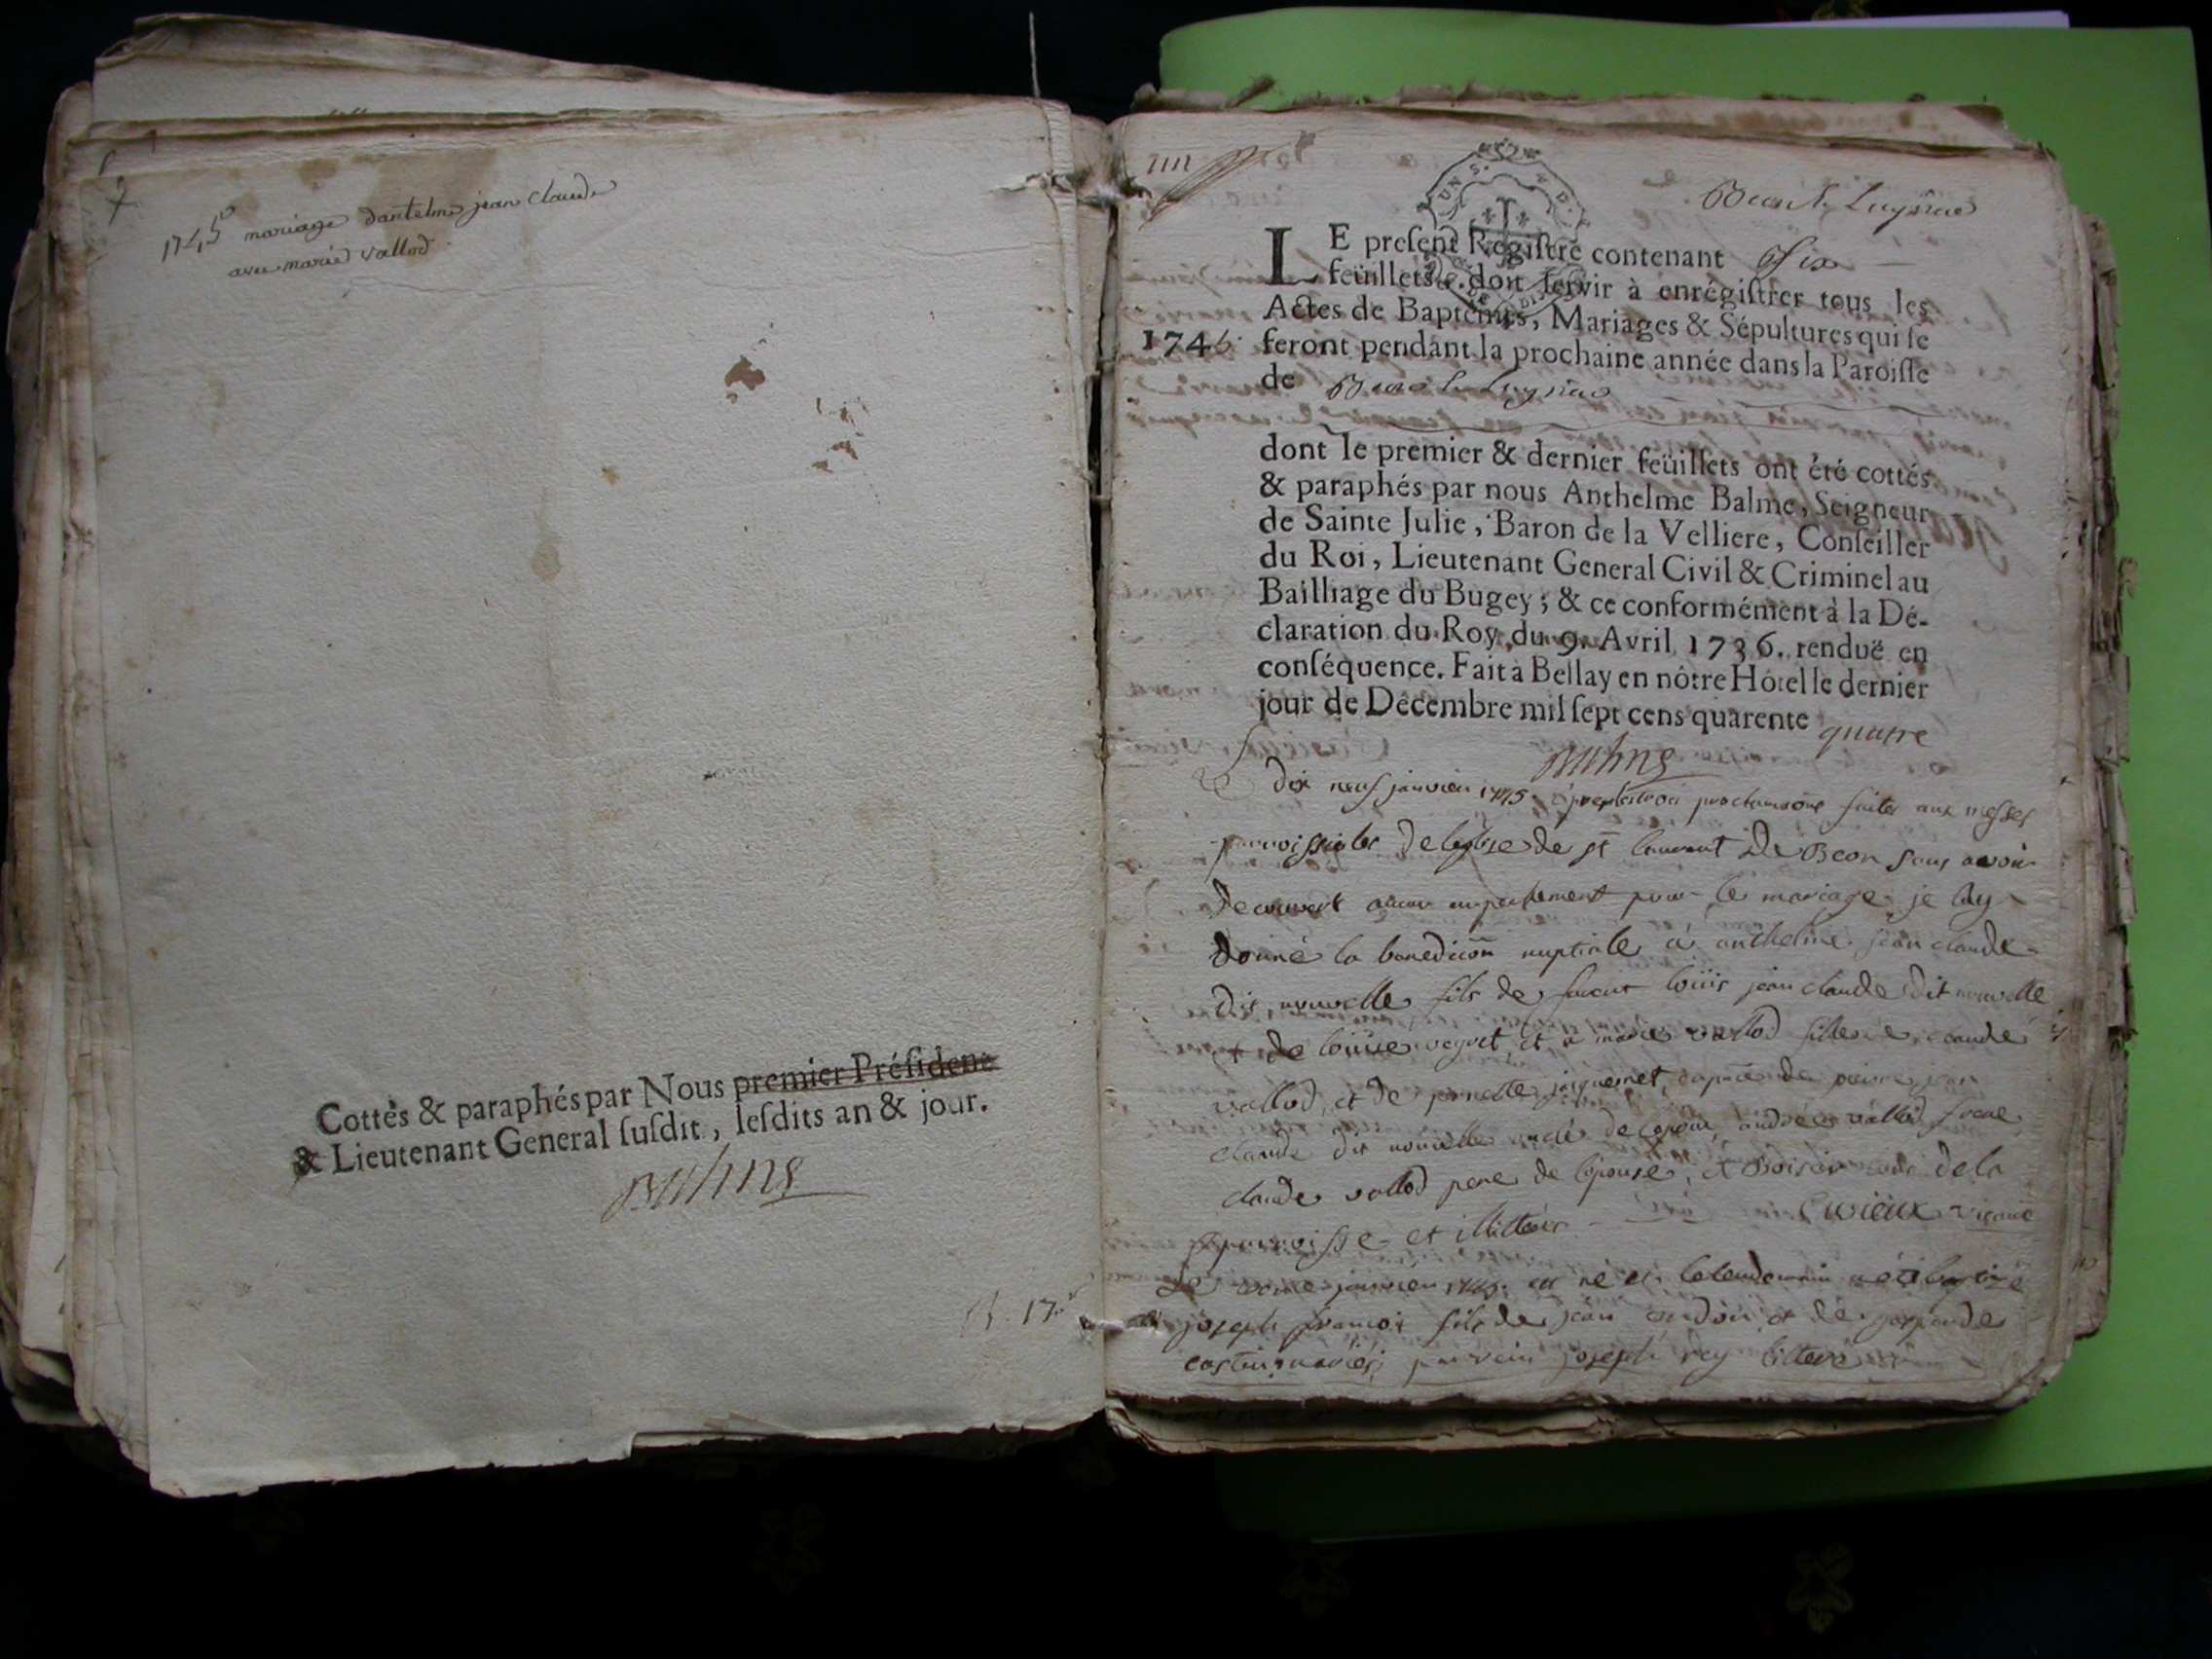 1745 mariage dantelme jean claude
avec marie vallod
Cottés & paraphés par Nous premier Préſident
& Lieutenant General ſuſdit, leſdits an & jour.
Balme
Beon & Luyrieu
LE preſent Regiſtre contenant Six
feüillets, doit ſervir à enrégiſtrer tous les
Actes de Baptêmes, Mariages & Sépultures qui ſe
1745 feront pendant la prochaine année dans la Paroiſſe
de Beon & Luyrieu
dont le premier & dernier feüillets ont été cottés
& paraphés par nous Anthelme Balme, Seigneur
de Sainte Julie, Baron de la Velliere, Conſeiller
du Roi, Lieutenant General Civil & Criminel au
Bailliage du Bugey; & ce conformément à la Dé-
claration du Roy, du 9. Avril 1736. renduë en
conſéquence. Fait à Bellay en nôtre Hôtel le dernier
jour de Décembre mil ſept cens quarente quatre
Balme
Le dix neuf janvier 1745. proclamaõns faites aux messes
parroissiales de leglise de st laurent de Beon sans avoir
decouvert aucun empechement pour le mariage je lay
donné la benediction nuptiale a anthelme jean claude
dit nouvelle fils de louis jean claude dit nouvelle
et de louise veyret et a marie vallod fille de claude
vallod, et de jaquemet, de pierre jean
claude dit nouvelle de andré vallod frere
claude vallod pere de lepouse, de la
parroisse et illitterés Curieux vicaire
Le janvier 1745. est né et le lendemain a été batisé
joseph francois fils de jean et de
mariés, parrein joseph rey